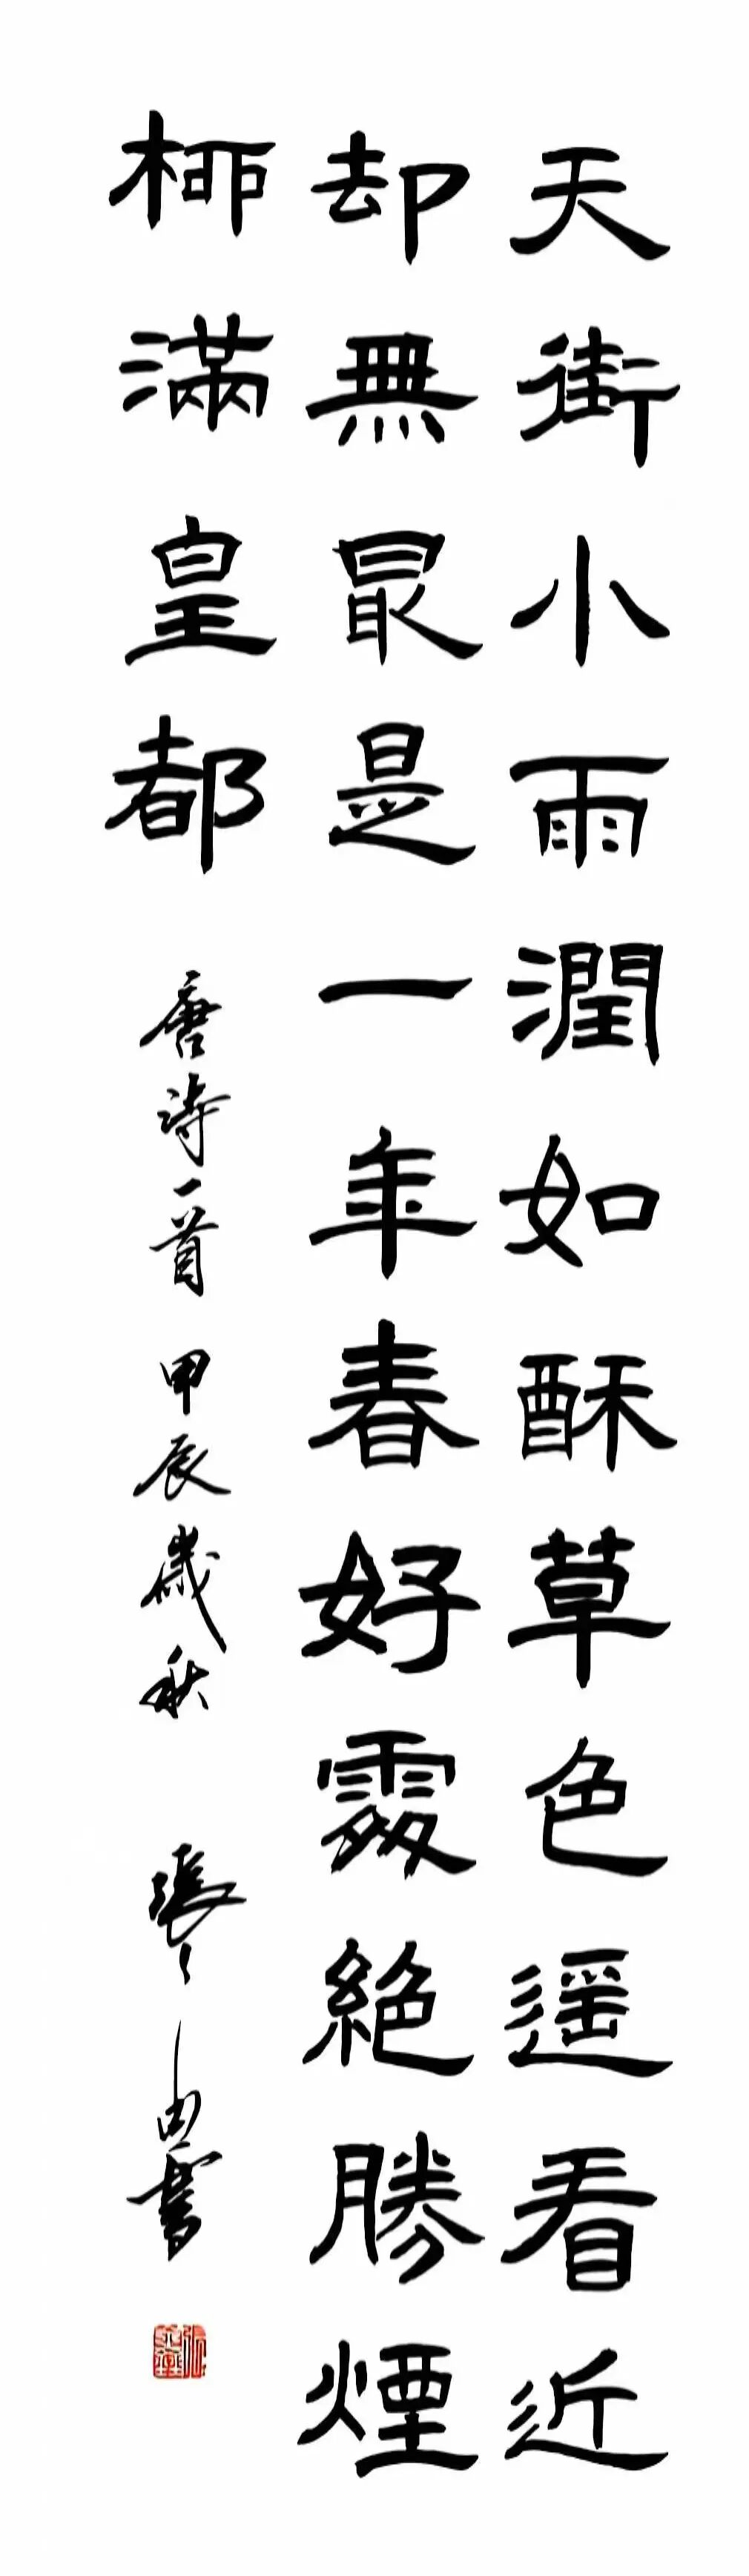 天街小雨潤如酥草色遥看近
却無最是一年春好處絶勝煙
柳滿皇都
唐詩一首 甲辰歲秋 張 書